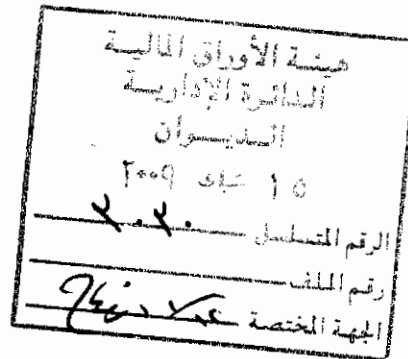 هيئة الأوراق المالية
الدائرة الإدارية
الديوان
١٥ شباط ٢٠٠٩
الرقم المتسلسل
رقم الملف
الجهة المختصة